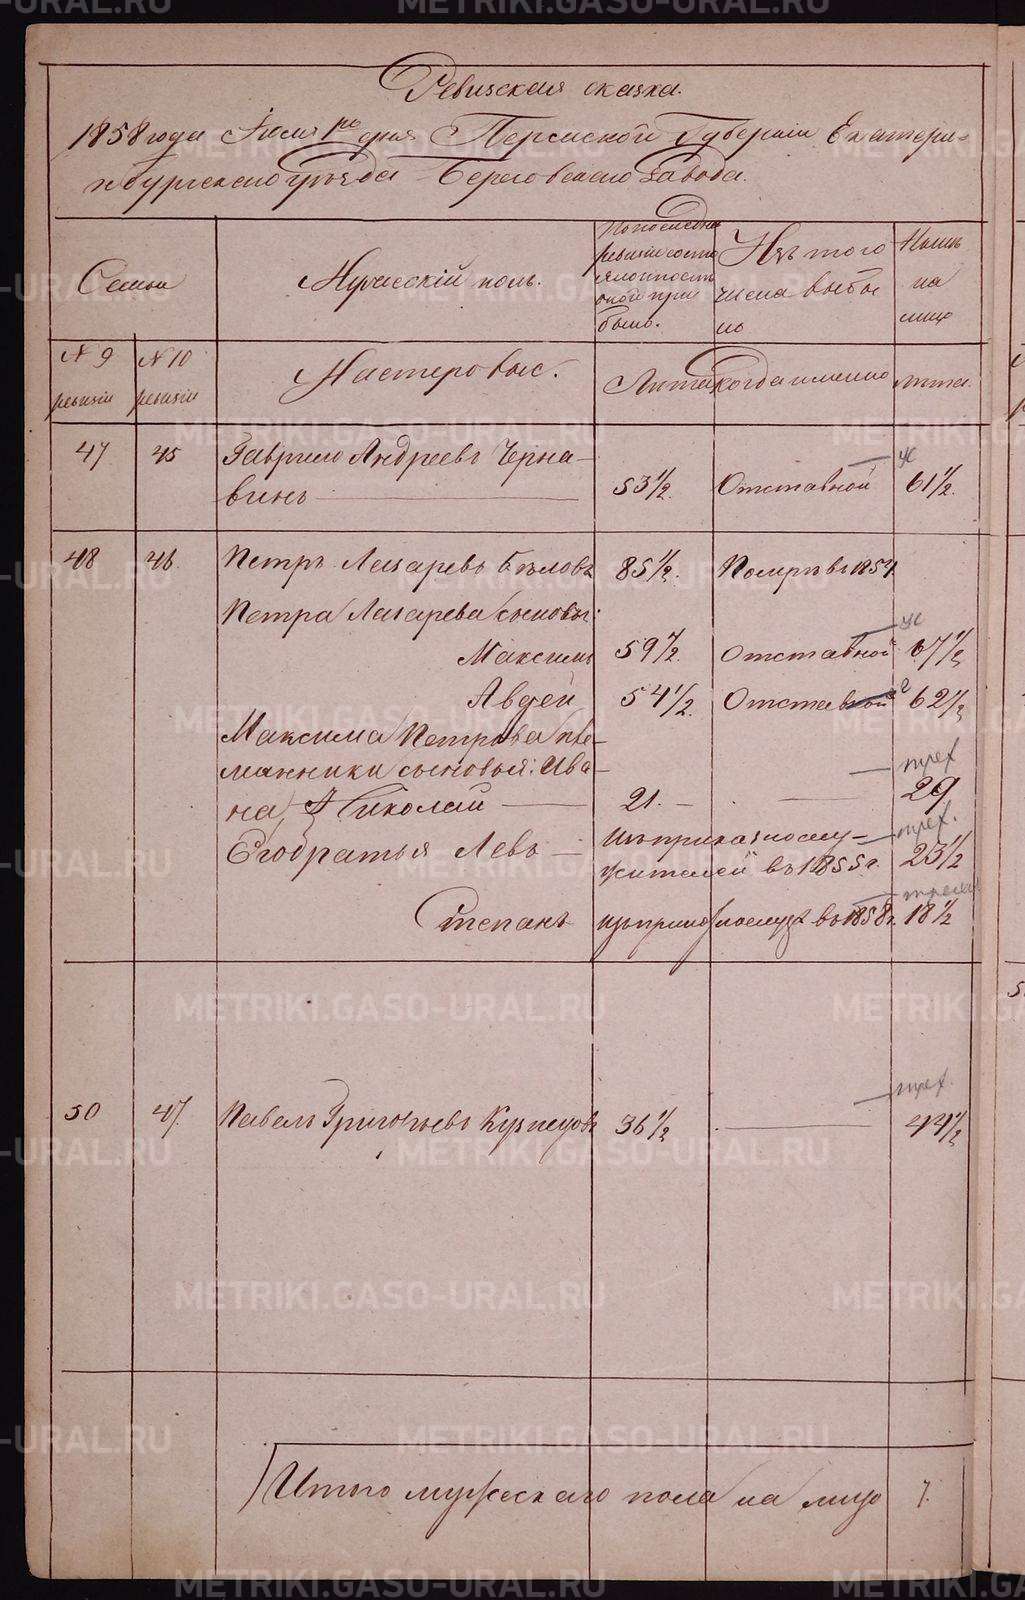 Ревизская сказка.
1858 года Июля 1го дня Пермской Губернiи Екатерин-
бургскаго уѣзда Березовскаго завода.
Семьи
Мужескiй полъ.
По последней
ревизiи состо
яло и послѣ
оной при
было.
Изъ того
числа выбы
ло
Нынѣ
на
лицо
№ 9
ревизiи
№ 10
ревизiи
Мастеровые.
Лѣта
когда именно
лѣта.
47 45 Гаврило Андреевъ Черна-
винъ 53 1/2. Отставной 61 1/2.
48 46. Петръ Лазаревъ Бѣловъ 85 1/2. Померъ въ 1854
Петра Лазарева сыновья:
Максимъ 59 1/2. Отставной 67 1/2
Авдей 54 1/2. Отставной 62 1/2
Максима Петрова пле-
мянники сыновья: Ива-
на, Николай 21. 29
Его братья Левъ Изъ приказнослу-
жителей въ 1855 г. 23 1/2
Степанъ въ 1858 г. 18 1/2
50 47. Павелъ Григорьевъ Кузнецовъ 36 1/2 44 1/2
Итого мужескаго пола на лицо 7.
METRIKI.GASO-URAL.RU